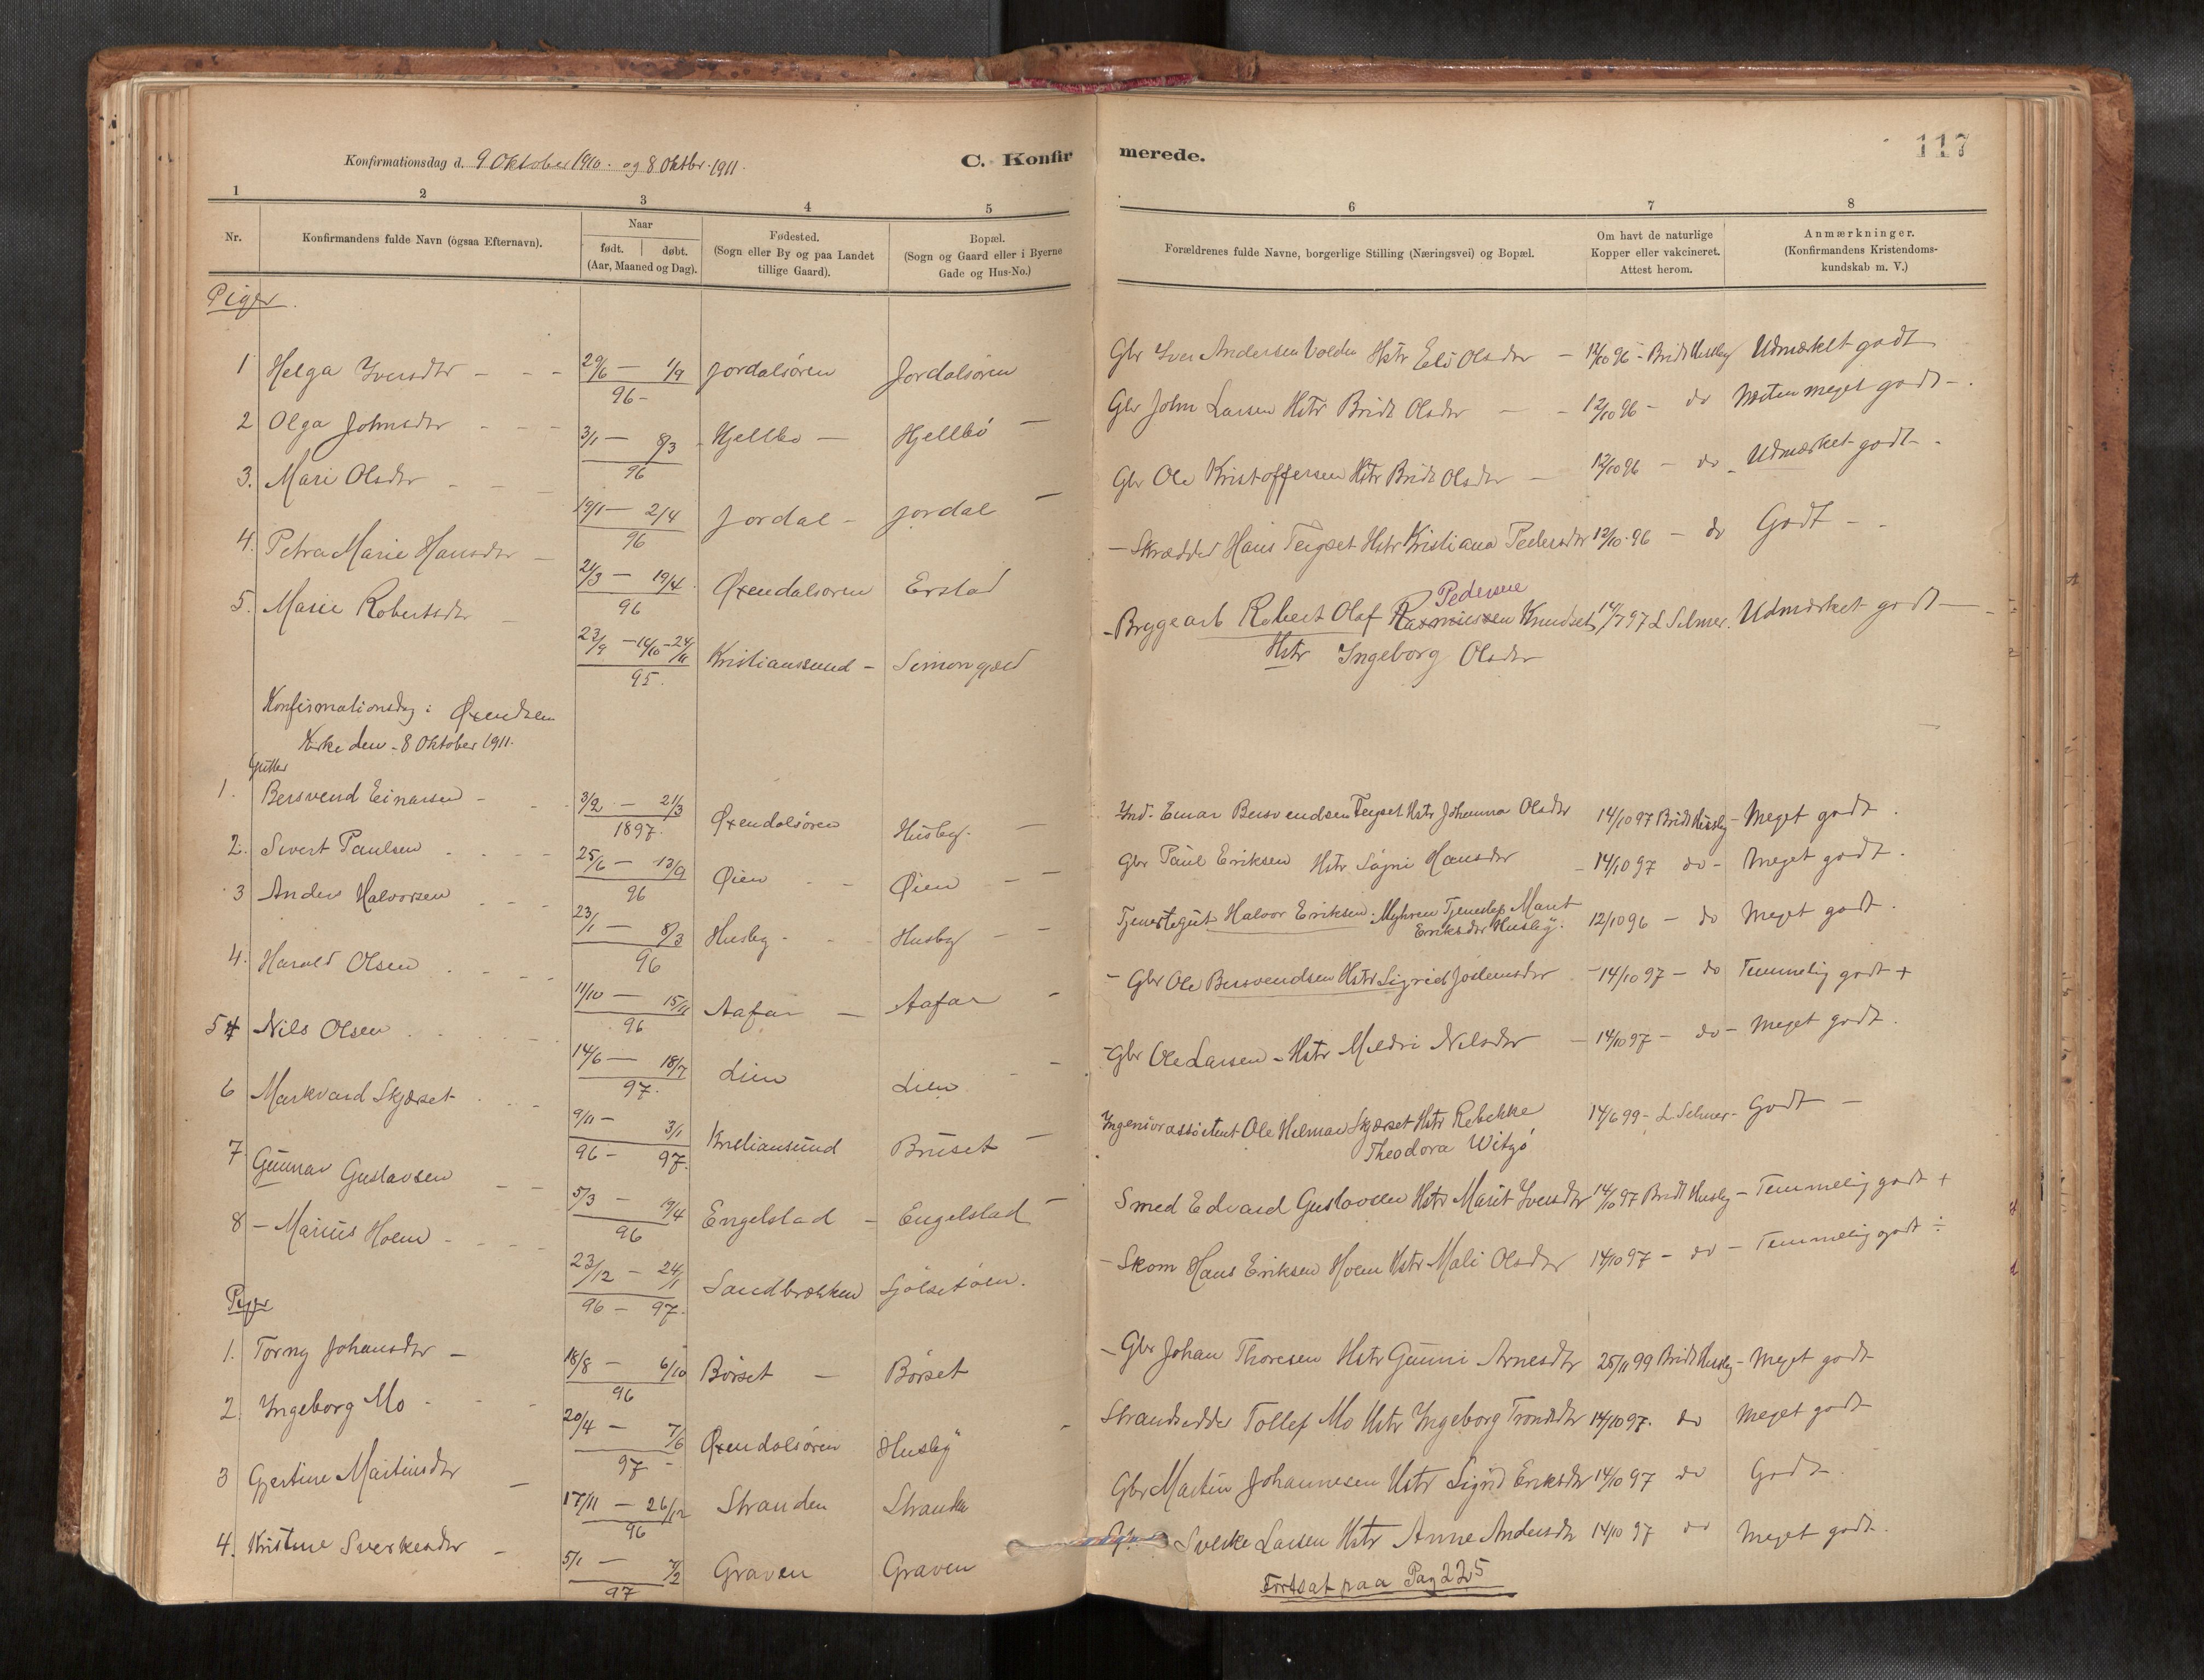 117
Konfirmationsdag d. 9 Oktober 1910. og 8 Oktbr. 1911.
C. Konfirmerede.
1 2 3 4 5 6 7 8
Nr.
Konfirmandens fulde Navn (ogsaa Efternavn).
Naar
født. | døbt.
(Aar, Maaned og Dag).
Fødested.
(Sogn eller By og paa Landet
tillige Gaard).
Bopæl.
(Sogn og Gaard eller i Byerne
Gade og Hus-No.)
Forældrenes fulde Navne, borgerlige Stilling (Næringsvei) og Bopæl.
Om havt de naturlige
Kopper eller vakcineret.
Attest herom.
Anmærkninger.
(Konfirmandens Kristendoms-
kundskab m. V.)
Piger.
1 Helga Iversdtr - - - 29/6 — 1/9 96 - Jordalsören Jordalsören Gbr Iver Andersen Volden Hstr Eli Olsdtr — 12/10 96 - Bridt Husby Udmærket godt
2 Olga Johnsdtr - - - 3/1 — 8/3 96 Hjellbö — Hjellbö — Gbr John Larsen Hstr Bridt Olsdtr — - 12/10 96 - do Næsten meget godt -.
3. Mari Olsdtr - - - 19/1 — 2/4 96 Jordal - Jordal — Gbr Ole Kristoffersen Hstr Bridt Olsdtr — 12/10 96 — do - Udmærket godt -
4. Petra Marie Hansdtr — 24/3 — 19/4 96 Øxendalsören Erstad - Skrædder Hans Teigset Hstr Kristiana Pedersdtr 12/10.96 — do Godt - -
5. Marie Robertsdtr - 23/9 - 14/10 - 24/11 95. Kristianssund - Simongjerd - Bryggearb Robert Olaf Rasmussen Pedersen Knudset 14/7 97 L Selmer. Udmærket godt —
Hstr Ingeborg Olsdtr
Konfirmationsdag i Øxendalen
Kirke den - 8 Oktober 1911.
Gutter
1. Bersvend Einarsen - - - 3/2 — 21/3 1897. Øxendalsören Husby. — Ind. Einar Bersvendsen Teigset Hstr Johanna Olsdtr 14/10 97 Bridt Husby - Meget godt.
2. Sivert Paulsen - - - 25/6 — 13/9 96 Øien - - Øien — Gbr Paul Eriksen Hstr Signi Hansdtr - 14/10 97 do - Meget godt.
3 Anders Halvorsen - - - 23/1 — 8/3 96 Husby - - Husby — Tjenestegut Halvor Eriksen Myhren Tjenestep Marit
Eriksdtr Husby. 12/10 96 — do Meget godt.
4. Harald Olsen - - - 11/10 — 15/11 96 Aafar — Aafar - - Gbr Ole Bersvendsen Hstr Sigrid Jostensdtr - 14/10 97 - do Temmelig godt +
5 Nils Olsen - - - 14/6 — 18/7 97. Lien Lien - - Gbr Ole Larsen - Hstr Mildri Nilsdtr — 14/10 97 - do - Meget godt.
6 Markvard Skjørset - - - 9/11 — 3/1 96 - 97. Kristiansund Bruset — Ingeniørassistent Ole Hilmar Skjørset Hstr Rebekke
Theodora Witzö 14/6 99 - L Selmer - Godt —
7 Gunnar Gustavsen - - 5/3 — 19/4 96 Engelstad - Engelstad — Smed Edvard Gustavsen Hstr Marit Iversdtr 14/10 97 Bridt Husby - Temmelig godt +
8 - Marius Holm - - - 23/12 — 24/1 96 - 97. Sandbrækken Sjölsetöien. - Skom Hans Eriksen Holm Hstr Mali Olsdtr 14/10 97 - do - Temmelig godt ÷
Piger
1. Torny Johansdtr — 18/8 — 6/10 96 Börset — Börset - Gbr Johan Thoresen Hstr Gunni Arnesdtr 25/11 99 Bridt Husby - Meget godt
2. Ingeborg Mo - - - 20/4 — 7/6 97 - Øxendalsören Husby - Strandsidder Tollef Mo Hstr Ingeborg Trondsdtr 14/10 97. do Meget godt
3 Gjertine Martinsdtr — 17/11 — 26/12 96 Stranden Stranden Gbr Martin Johannesen Hstr Sigrid Eriksdtr 14/10 97 do Godt
4. Kristine Sverkesdtr - 5/1 — 7/2 97 Graven Graven Gbr Sverke Larsen Hstr Anne Andersdtr 14/10 97 do Meget godt.
Fortsat paa Pag 225